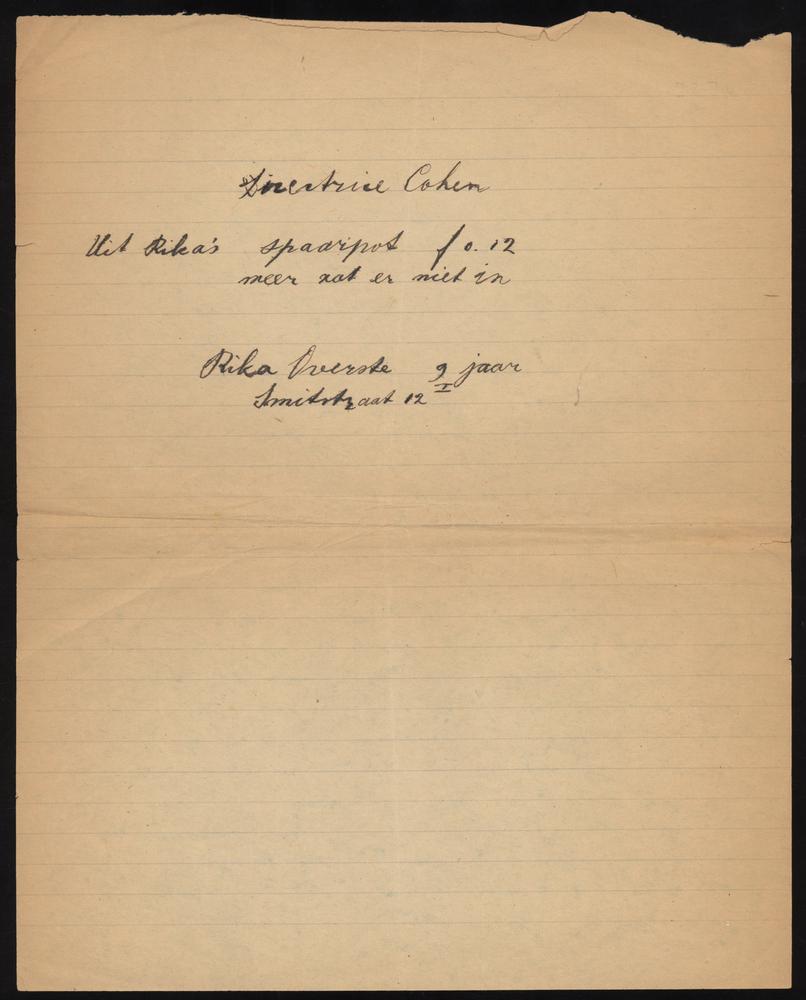 Directrice Cohen
Uit Rika's spaarpot f 0.12
meer zat er niet in
Rika Overste 9 jaar
Smitstraat 12 I